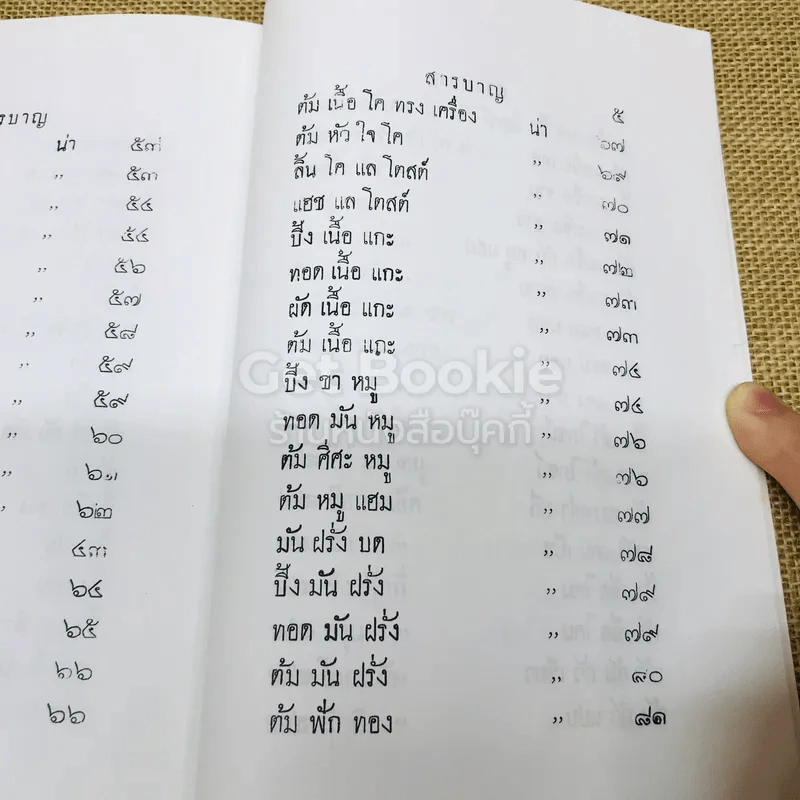 ารบาญ
น่า ๕๓
” ๕๓
” ๕๔
” ๕๔
” ๕๖
” ๕๗
” ๕๘
” ๕๙
” ๕๙
” ๖๐
” ๖๑
” ๖๒
๔๓
๖๔
๖๕
๖๖
๖๖
สารบาญ ๕
ต้ม เนื้อ โค ทรง เครื่อง น่า ๖๗
ต้ม หัว ใจ โค ” ๖๙
ลิ้น โค แล โตสต์ ” ๗๐
แฮช แล โตสต์ ” ๗๑
บึ้ง เนื้อ แกะ ” ๗๒
ทอด เนื้อ แกะ ” ๗๓
ผัด เนื้อ แกะ ” ๗๓
ต้ม เนื้อ แกะ ” ๗๔
บึ้ง ขา หมู ” ๗๔
ทอด มัน หมู ” ๗๖
ต้ม ศีศะ หมู ” ๗๖
ต้ม หมู แฮม ” ๗๗
มัน ฝรั่ง บด ” ๗๘
บึ้ง มัน ฝรั่ง ” ๗๙
ทอด มัน ฝรั่ง ” ๗๙
ต้ม มัน ฝรั่ง ” ๘๐
ต้ม ฟัก ทอง ” ๘๑
Get Bookie
ร้านหนังสือบุ๊คกี้